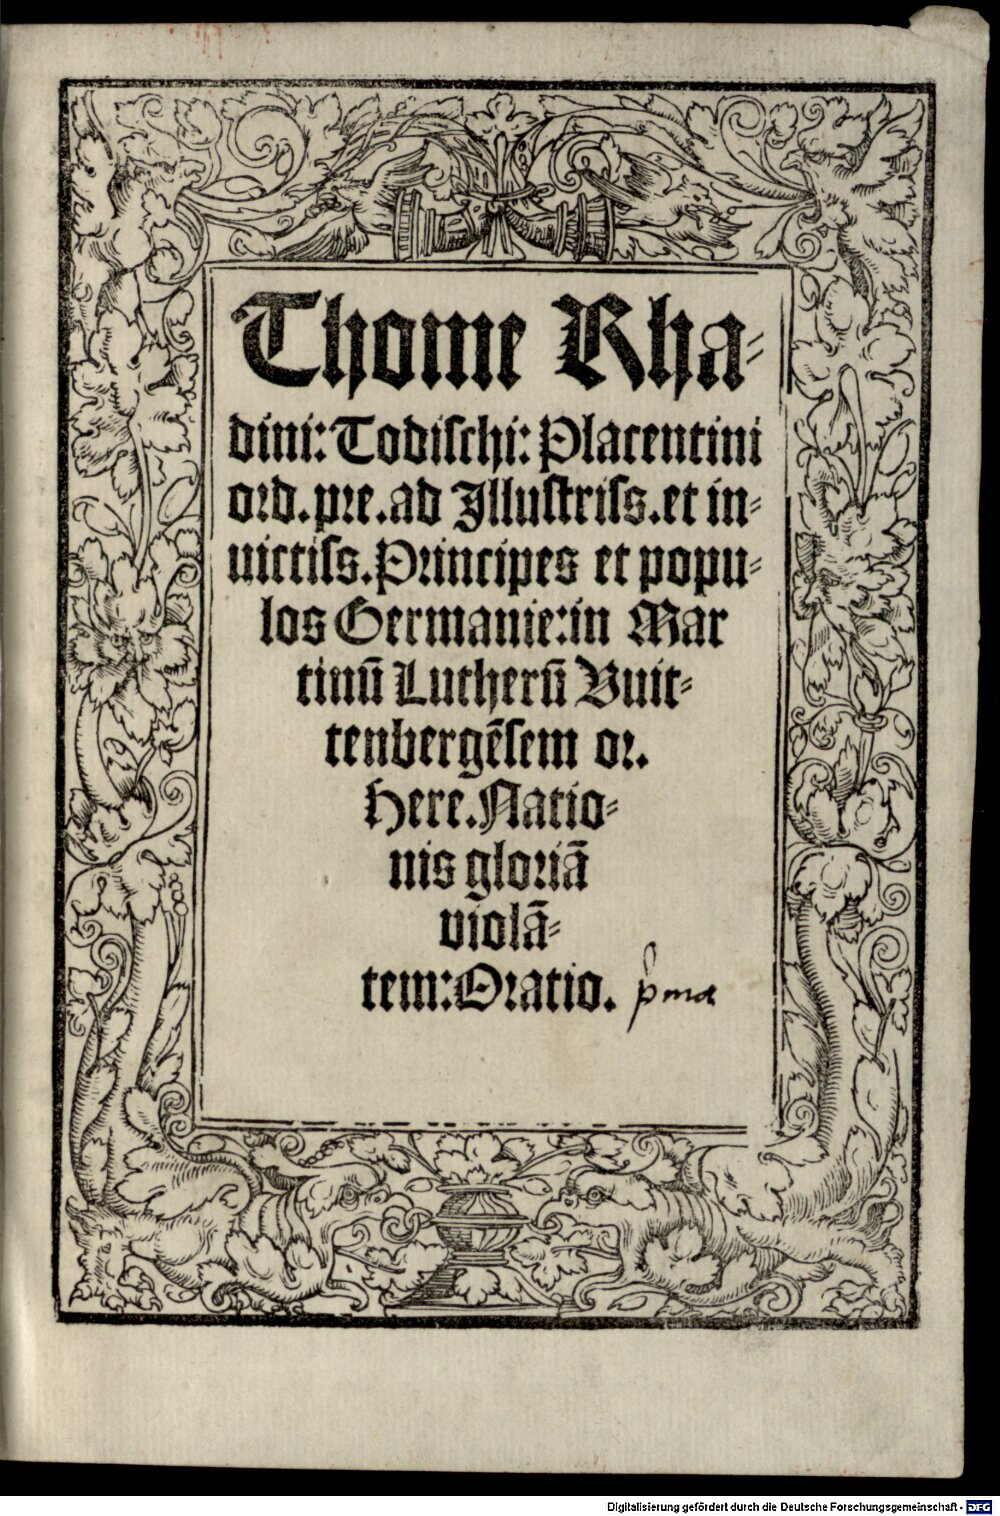 Thome Rha-
dini: Todischi: Placentini
ord. pre. ad Illustriss. et in-
uictiss. Principes et popu-
los Germanie: in Mar
tinū Lutherū Vuit-
tenbergēsem or.
Here. Natio-
nis gloriā
violā-
tem: Oratio. pma
Digitalisierung gefördert durch die Deutsche Forschungsgemeinschaft - DFG